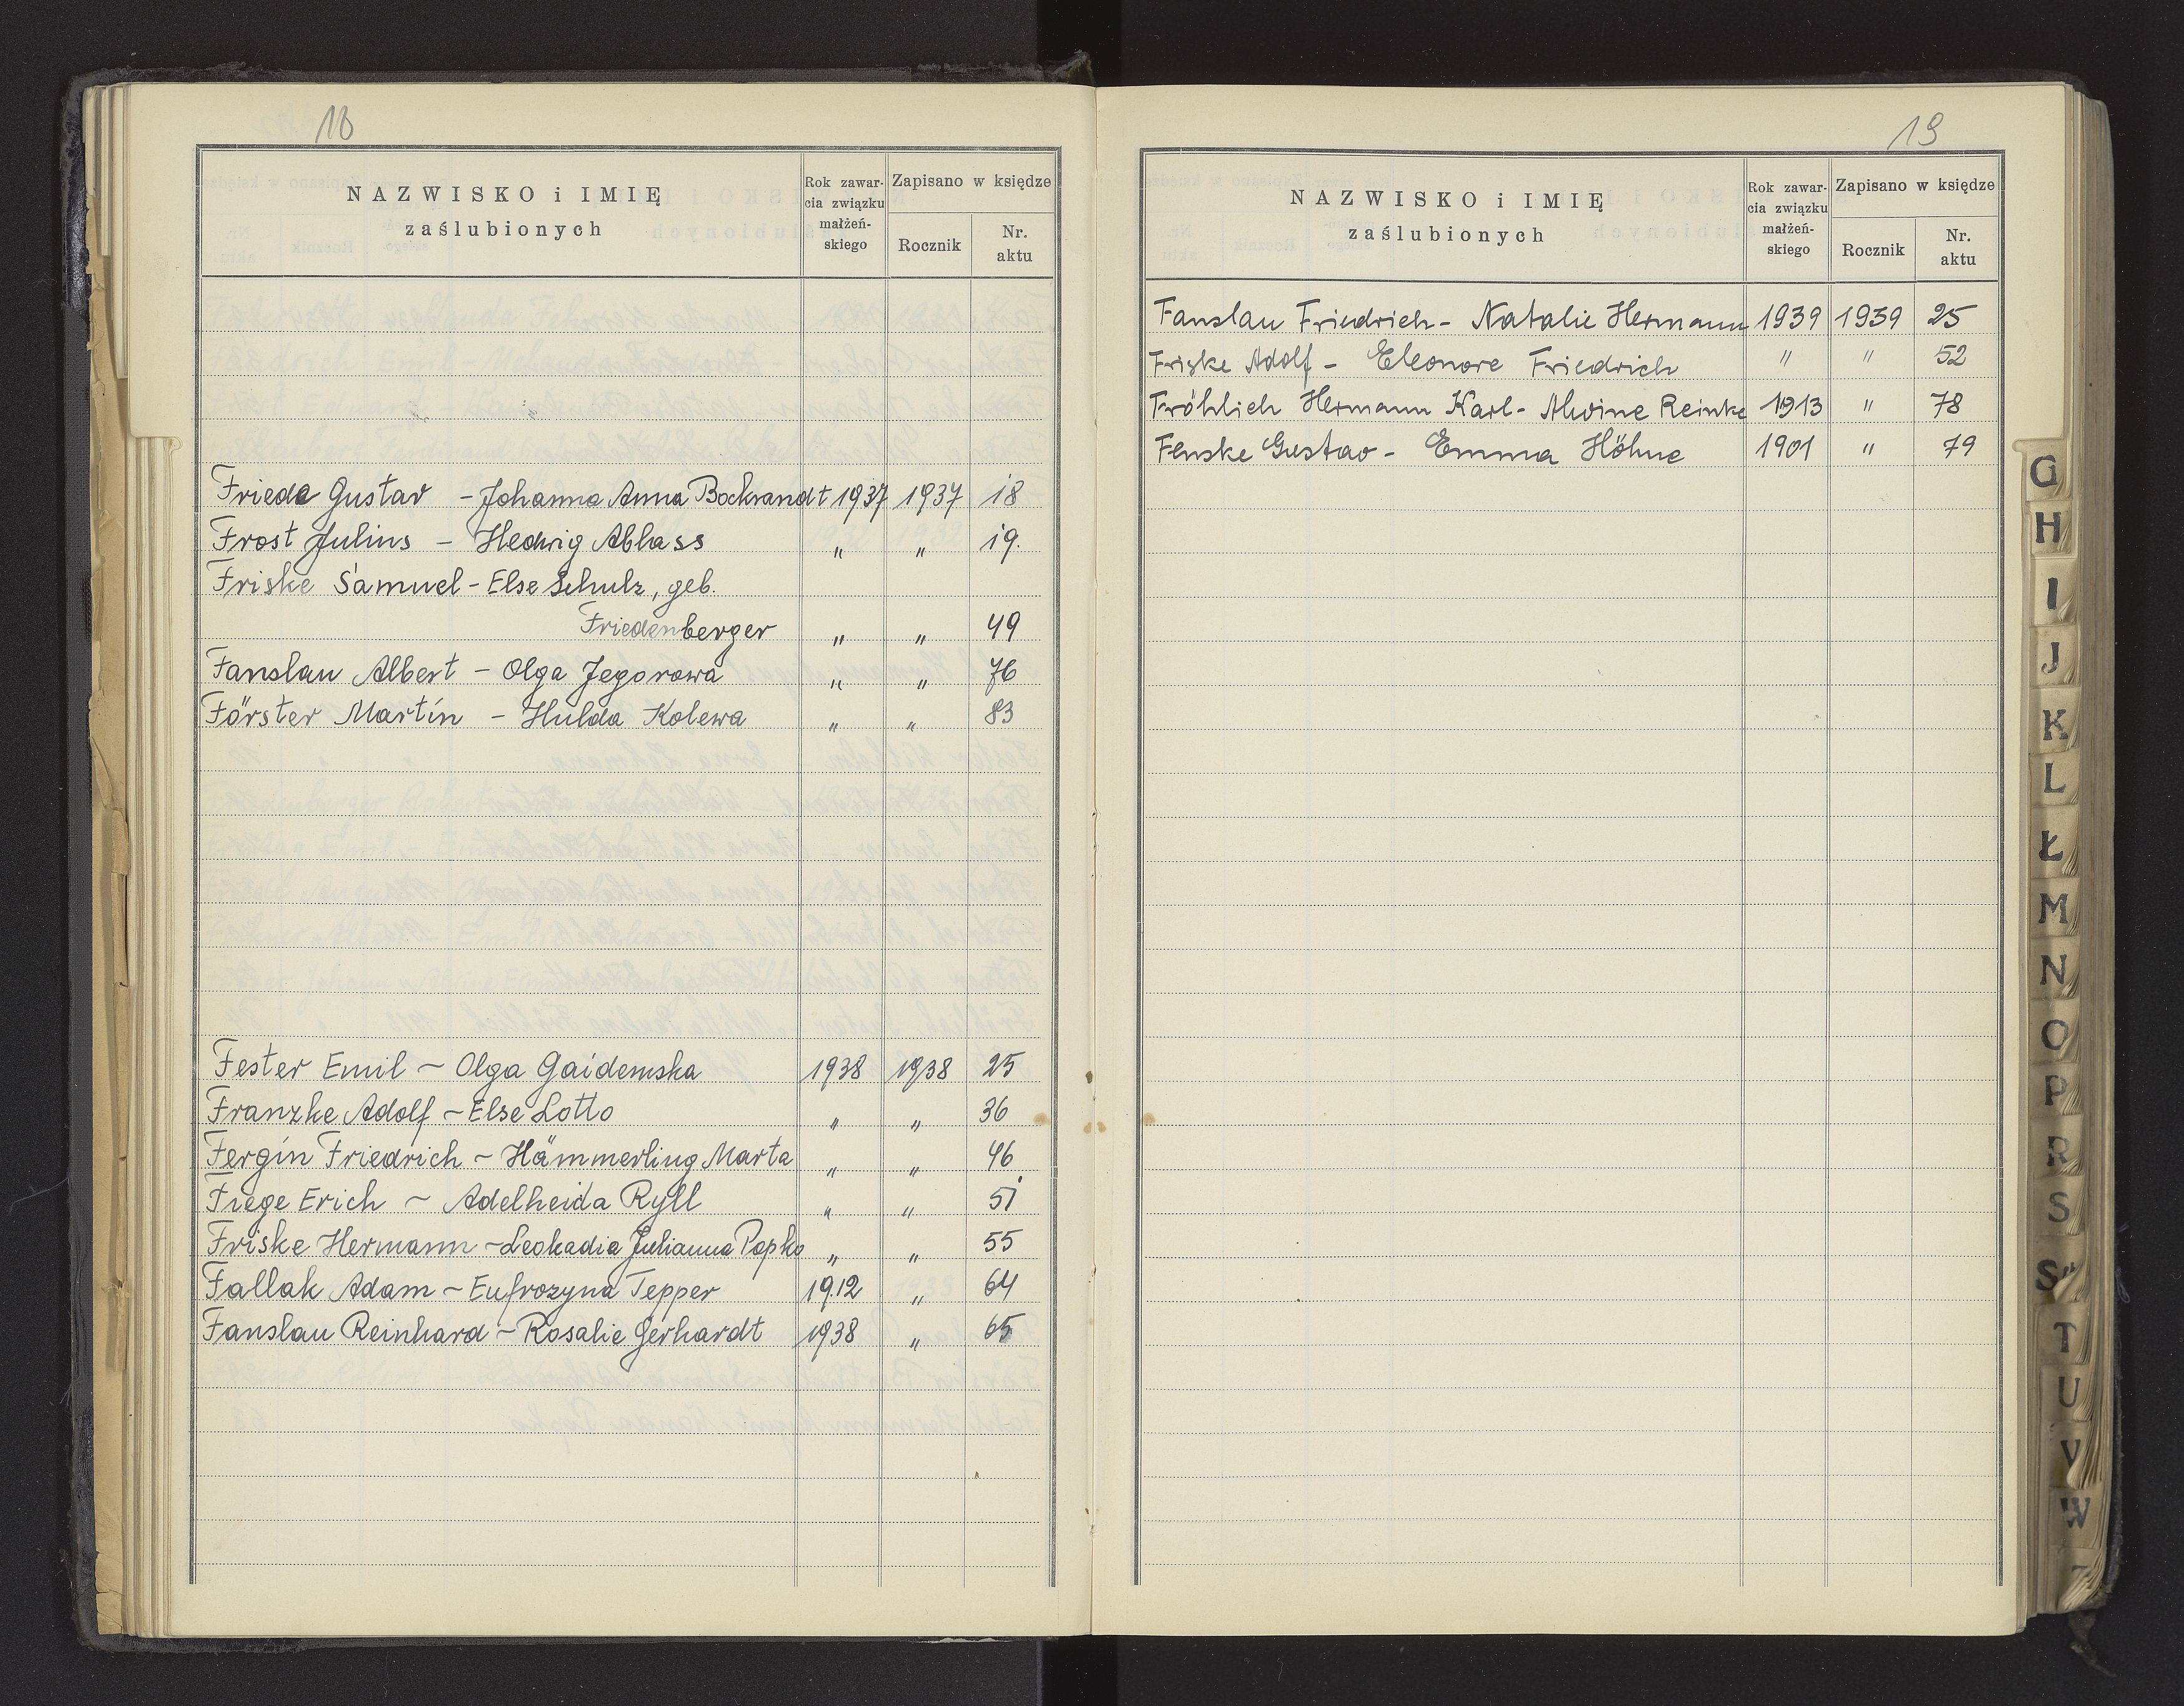 18
NAZWISKO i IMIĘ
zaślubionych
Rok zawar-
cia związku
małżeń-
skiego
Zapisano w księdze
Rocznik
Nr.
aktu
Frieda Gustav - Johanna Anna Bockrandt 1937 1937 18
Frost Julius - Hedwig Abhass " " 19.
Friske Samuel - Else Schulz, geb.
Friedenberger " " 49
Fanslau Albert - Olga Jegorowa " " 76
Förster Martin - Hulda Kolewa " " 83
Fester Emil - Olga Gaidemska 1938 1938 25
Franzke Adolf - Else Lotto " " 36
Fergin Friedrich - Hämmerling Marta " " 46
Fiege Erich - Adelheida Ryll " " 51
Friske Hermann - Leokadia Julianna Popko " " 55
Fallak Adam - Eufrozyna Tepper 1912 " 64
Fanslau Reinhard - Rosalie Gerhardt 1938 " 65
19
NAZWISKO i IMIĘ
zaślubionych
Rok zawar-
cia związku
małżeń-
skiego
Zapisano w księdze
Rocznik
Nr.
aktu
Fanslau Friedrich - Natalie Hermann 1939 1939 25
Friske Adolf - Eleonore Friedrich " " 52
Fröhlich Hermann Karl - Alwine Reinke 1913 " 78
Fenske Gustav - Emma Höhne 1901 " 79
G
H
I
J
K
L
Ł
M
N
O
P
R
S
T
U
V
W